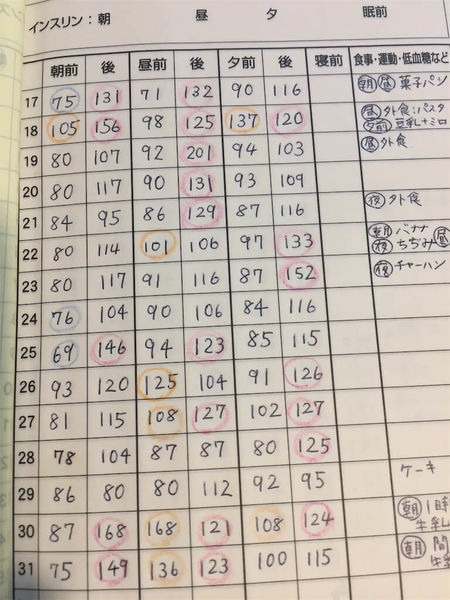 インスリン：朝 昼 夕 眠前
朝前 後 昼前 後 夕前 後 寝前 食事・運動・低血糖など
17 75 131 71 132 90 116 朝 昼 菓子パン
18 105 156 98 125 137 120 昼 外食：パスタ
夕前 豆乳+ミロ
19 80 107 92 201 94 103 昼 外食
20 80 117 90 131 93 109
21 84 95 86 129 87 116 夜 外食
22 80 114 101 106 97 133 朝 バナナ
夜 ちぢみ 昼
23 80 117 91 116 87 152 夜 チャーハン
24 76 104 90 106 84 116
25 69 146 94 123 85 115
26 93 120 125 104 91 126
27 81 115 108 127 102 127
28 78 104 87 87 80 125
29 86 80 80 112 92 95 ケーキ
30 87 168 168 121 108 124 朝 1時
牛乳
31 75 149 136 123 100 115 朝 間